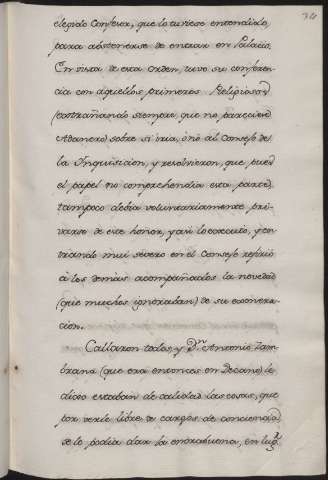 elegido Confesor, que lo tuviese entendido,
para abstenerse de entrar en Palacio.
En vista de esta orden, tuvo su conferen-
cia con aquellos primeros Religiosos
(extrañando siempre que no pareciese
Adanero) sobre si iria, ó nó al Consejo de
la Inquisicion, y resolvieron, que pues
el papel no comprehendia esta parte,
tampoco debia voluntariamente pri-
varse de este honor, y asi lo executó, y en-
trando mui severo en el Consejo refirió
á los demàs acompañados la novedad
(que muchos ignoraban) de su exonera-
cion.
Callaron todos, y Dn. Antonio Zam-
brana (que era entonces en Decano) le
dixo estaban de calidad las cosas, que
por verle libre de cargos de conciencia
se le podia dar la enorabuena, en lugr.